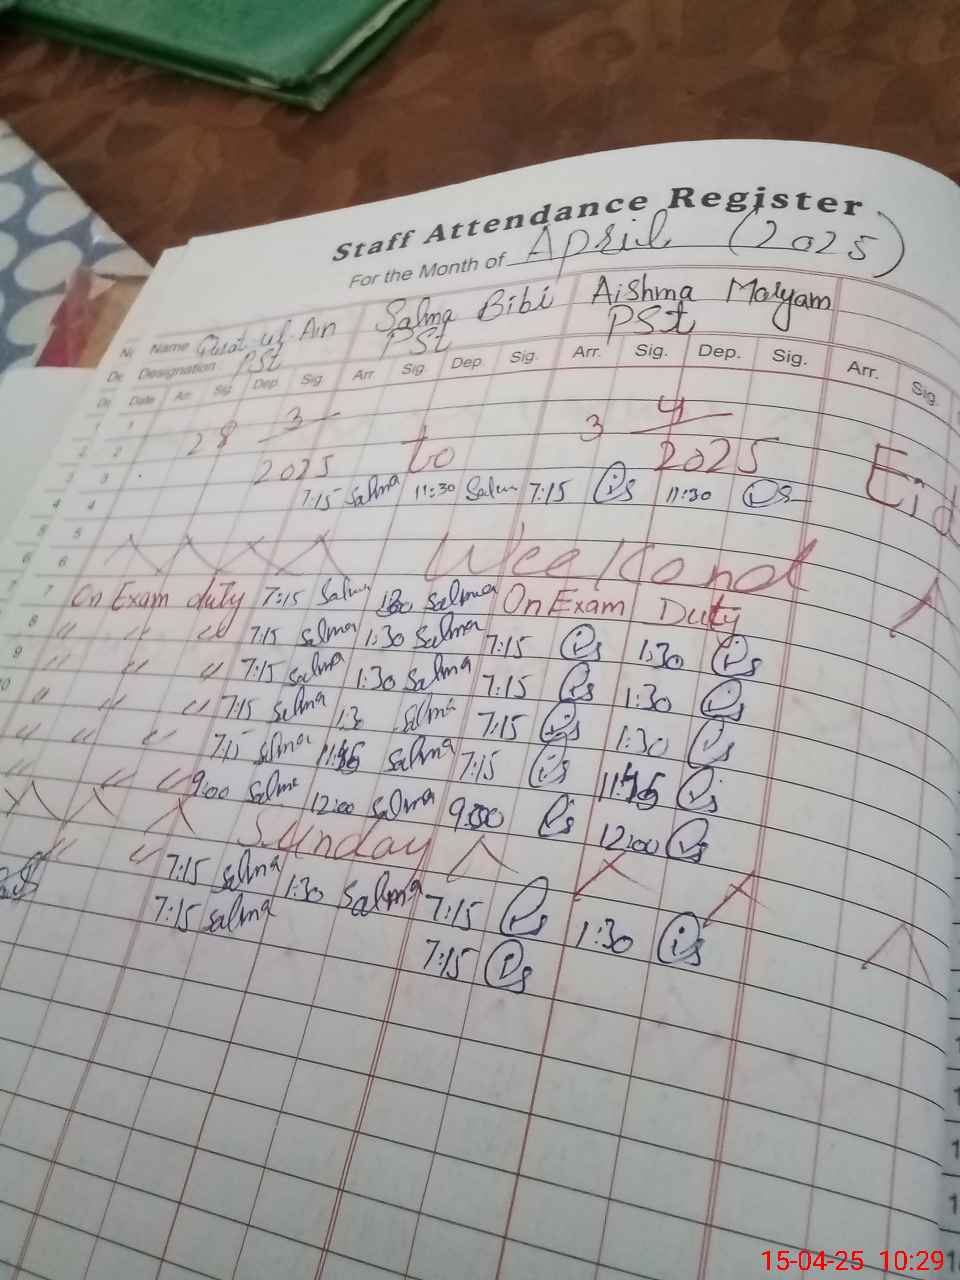 Staff Attendance Register
For the Month of April (2025)
Name Salma Bibi Aishma Maryam
Designation PSt PSt PSt
Date Arr. Sig Dep. Sig Arr. Sig Dep. Sig. Arr. Sig. Dep. Sig. Arr. Sig.
1 1 28 3 2025 to 3 4 2025 Eid
2 2
3 3
4 4 7:15 Salma 11:30 Salma 7:15 11:30
5 5
6 6 Weekend
7 7 On Exam duty 7:15 Salma 1:30 Salma On Exam Duty
8 " " " 7:15 Salma 1:30 Salma 7:15 1:30
9 " " " 7:15 Salma 1:30 Salma 7:15 1:30
10 " " " 7:15 Salma 1:30 Salma 7:15 1:30
" " " 7:15 Salma Salma 7:15
" " " 9:00 Salma 12:00 Salma 9:00 12:00
Sunday
" " 7:15 Salma 1:30 Salma 7:15 1:30
7:15 Salma 7:15
15-04-25 10:29